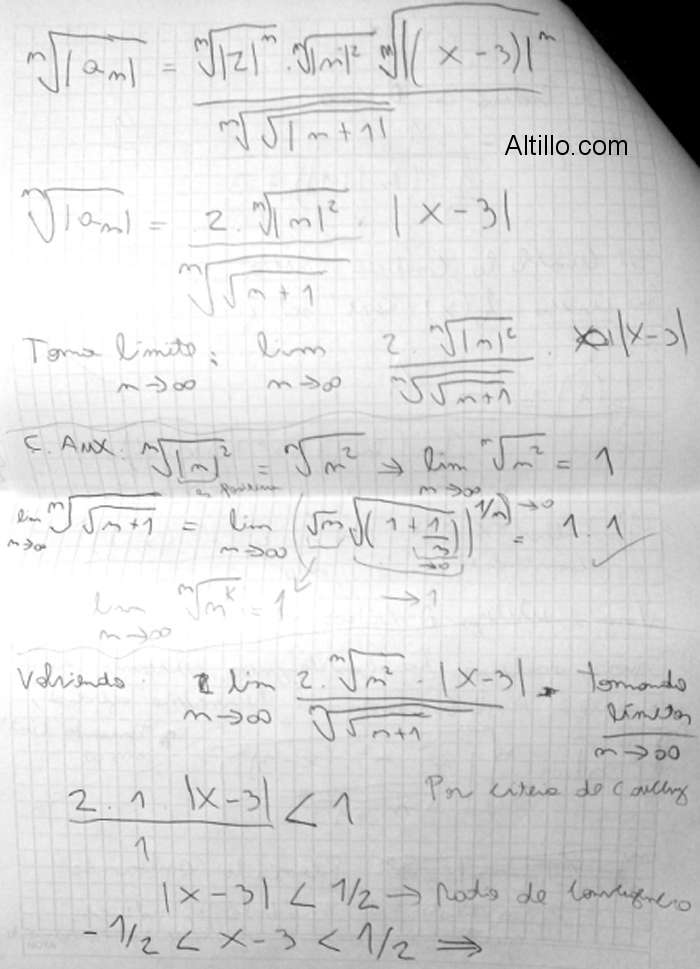 ⁿ√|aₙ| = ⁿ√|2|ⁿ · ⁿ√|n|² ⁿ√|(x-3)|ⁿ / ⁿ√√|n+1|
Altillo.com
ⁿ√|aₙ| = 2 · ⁿ√|n|² · |x-3| / ⁿ√√n+1
Tomo límite: lim n→∞ 2 · ⁿ√|n|² / ⁿ√√n+1 · |x-3|
n→∞
C. AUX. ⁿ√|n|² = ⁿ√n² → lim n→∞ ⁿ√n² = 1
es positivo
lim n→∞ ⁿ√√n+1 = lim n→∞ (√n √(1+1/n))^1/n →0 = 1 · 1
→0
lim n→∞ ⁿ√n^k = 1 →1
Volviendo lim n→∞ 2 · ⁿ√n² · |x-3| / ⁿ√√n+1 · tomando
límites
n→∞
2 · 1 · |x-3| / 1 < 1 Por criterio de Cauchy
|x-3| < 1/2 → Radio de convergencia
-1/2 < x-3 < 1/2 ⇒